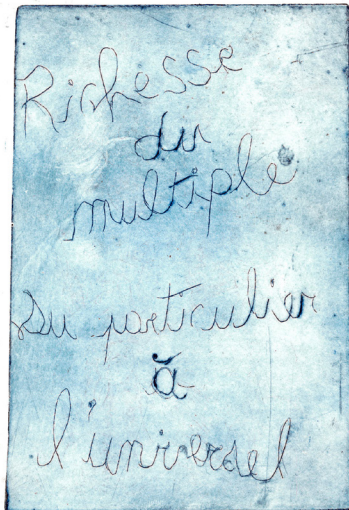 Richesse
du
multiple
Du particulier
à
l'universel